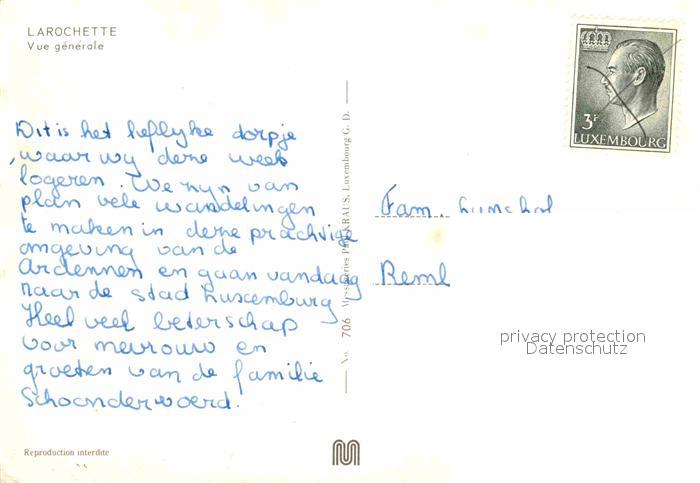 LAROCHETTE
Vue générale
3F
LUXEMBOURG
Dit is het lieflyke dorpje
, waar wy deze week
logeren. We zijn van
plan vele wandelingen
te maken in deze prachtige
omgeving van de
Ardennen en gaan vandaag
naar de stad Luxemburg
Heel veel beterschap
voor mevrouw en
groeten van de familie
Schoonderwoerd.
No. 706 Messageries Paul KRAUS, Luxembourg G. D.
Fam.
privacy protection
Datenschutz
Reproduction interdite